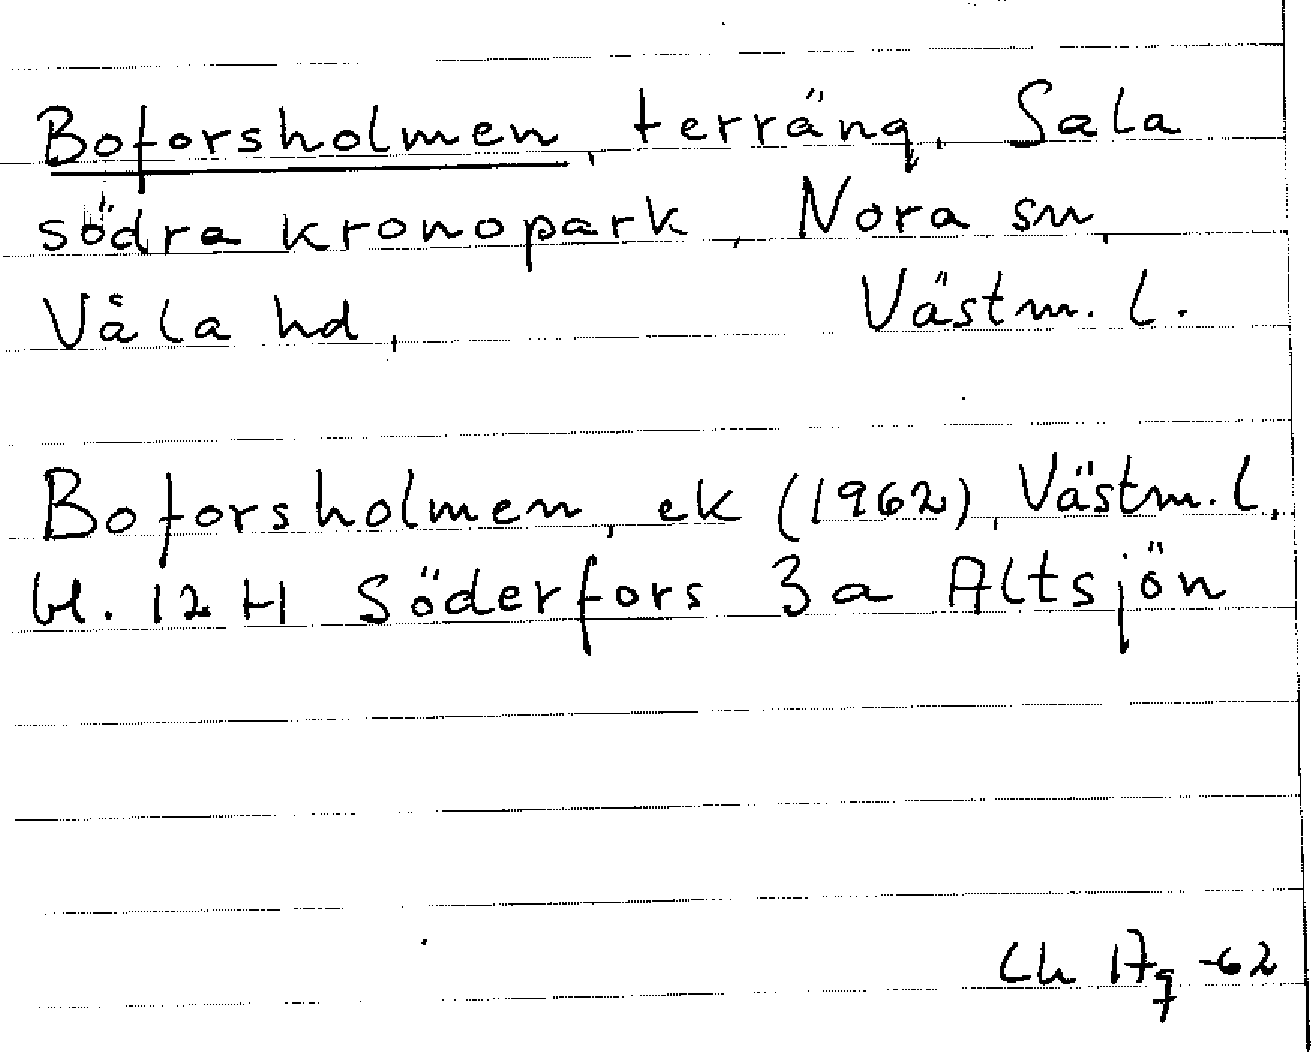 Boforsholmen, terräng, Sala
södra kronopark, Nora sn,
Våla hd, Västm. l.
Boforsholmen, ek (1962), Västm. l.
bl. 12 H Söderfors 3 a Altsjön
Ch 17/9 -62